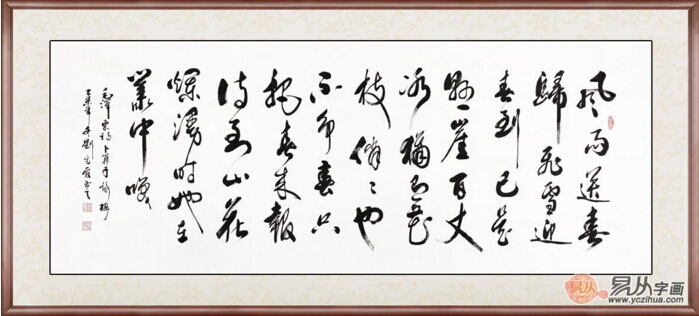 風雨送春
歸飛雪迎
春到已是
懸崖百丈
冰猶有花
枝俏々也
不爭春只
把春來報
待到山花
爛漫時她在
叢中笑
毛澤東詞卜算子詠梅
乙未年冬劉光霞書
易从字画
www.yczihua.com